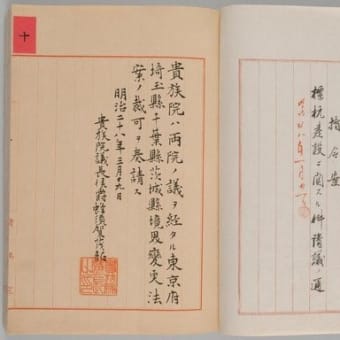 十
貴族院ハ両院ノ議ヲ経タル東京府
埼玉縣千葉縣茨城縣境界變更法
案ノ裁可ヲ奏請ス
明治二十八年三月十九日
貴族院議長侯爵蜂須賀茂韶
指令案
標杭建設ニ関スル
通